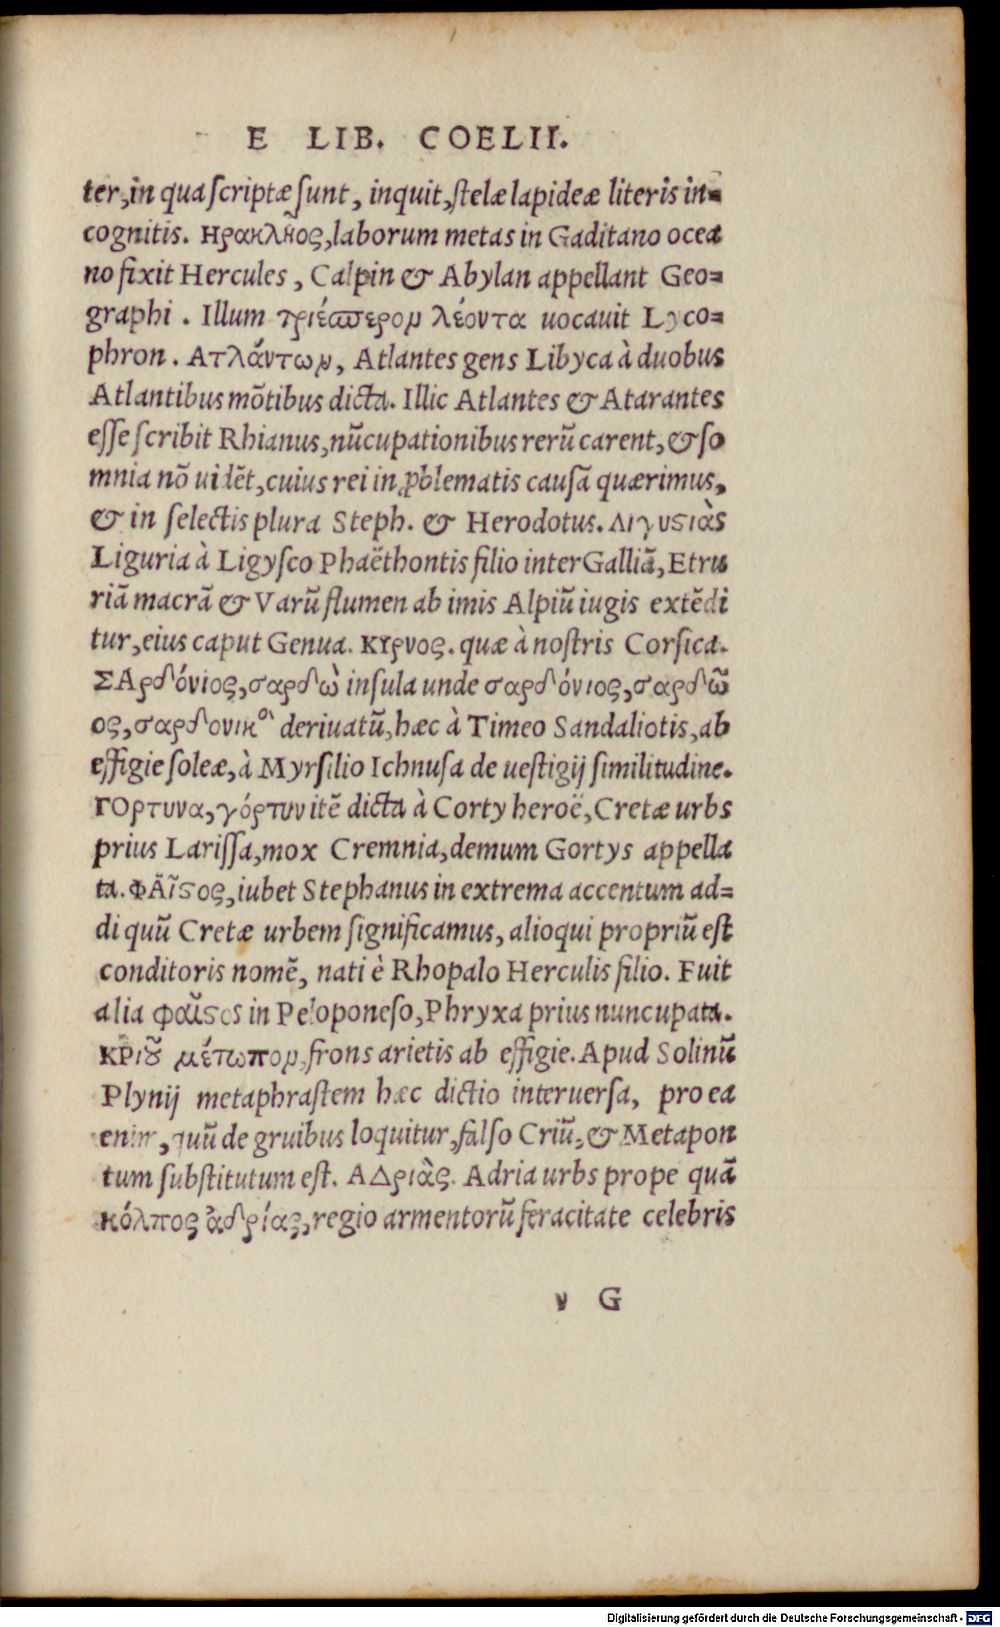 E LIB. COELII.
ter, in qua scriptæ sunt, inquit, stelæ lapideæ literis in=
cognitis. Ηρακλῆος, laborum metas in Gaditano ocea
no fixit Hercules, Calpin & Abylan appellant Geo=
graphi. Illum τριέσπερον λέοντα uocauit Lyco=
phron. Ατλάντων, Atlantes gens Libyca à duobus
Atlantibus mõtibus dicta. Illic Atlantes & Atarantes
esse scribit Rhianus, nũcupationibus rerũ carent, & so
mnia nõ uidẽt, cuius rei in ꝓblematis causã quærimus,
& in selectis plura Steph. & Herodotus. Λιγυστιὰς
Liguria à Ligysco Phaëthontis filio inter Galliã, Etru
riã macrã & Varũ flumen ab imis Alpiũ iugis extẽdi
tur, eius caput Genua. Κυρνος. quæ à nostris Corsica.
ΣΑρδόνιος, σαρδὼ insula unde σαρδόνιος, σαρδῶ
ος, σαρδονικὸν deriuatũ, hæc à Timeo Sandaliotis, ab
effigie soleæ, à Myrsilio Ichnusa de uestigij similitudine.
ΓΟρτυνα, γόρτυν itẽ dicta à Corty heroë, Cretæ urbs
prius Larissa, mox Cremnia, demum Gortys appella
ta. ΦΑῖστος, iubet Stephanus in extrema accentum ad=
di quũ Cretæ urbem significamus, alioqui propriũ est
conditoris nomẽ, nati è Rhopalo Herculis filio. Fuit
alia φαῖστος in Peloponeso, Phryxa prius nuncupata.
ΚΡιοῦ μέτωπον, frons arietis ab effigie. Apud Solinũ
Plynij metaphrastem hæc dictio interuersa, pro ea
enim, quũ de gruibus loquitur, falso Criũ, & Metapon
tum substitutum est. ΑΔριὰς. Adria urbs prope quã
κόλπος ἀδρίας, regio armentorũ feracitate celebris
v G
Digitalisierung gefördert durch die Deutsche Forschungsgemeinschaft - DFG